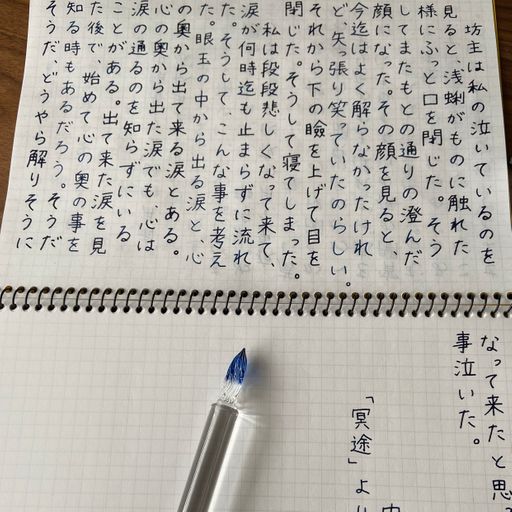 坊主は私の泣いているのを
見ると、浅蜊がものに触れた
様にふっと口を閉じた。そう
してまたもとの通りの澄んだ
顔になった。その顔を見ると、
今迄はよく解らなかったけれ
ど、矢っ張り笑っていたのらしい。
それから下の瞼を上げて目を
閉じた。そうして寝てしまった。
私は段段悲しくなって来て、
涙が何時迄も止まらずに流れ
た。そうして、こんな事を考え
た。眼玉の中から出る涙と、心
の奥から出て来る涙とある。
心の奥から出た涙でも、心は
涙の通るのを知らずにいる
ことがある。出て来た涙を見
た後で、始めて心の奥の事を
知る時もあるだろう。そうだ
そうだ、どうやら解りそうに
なって来たと思
事泣いた。
「冥途」より